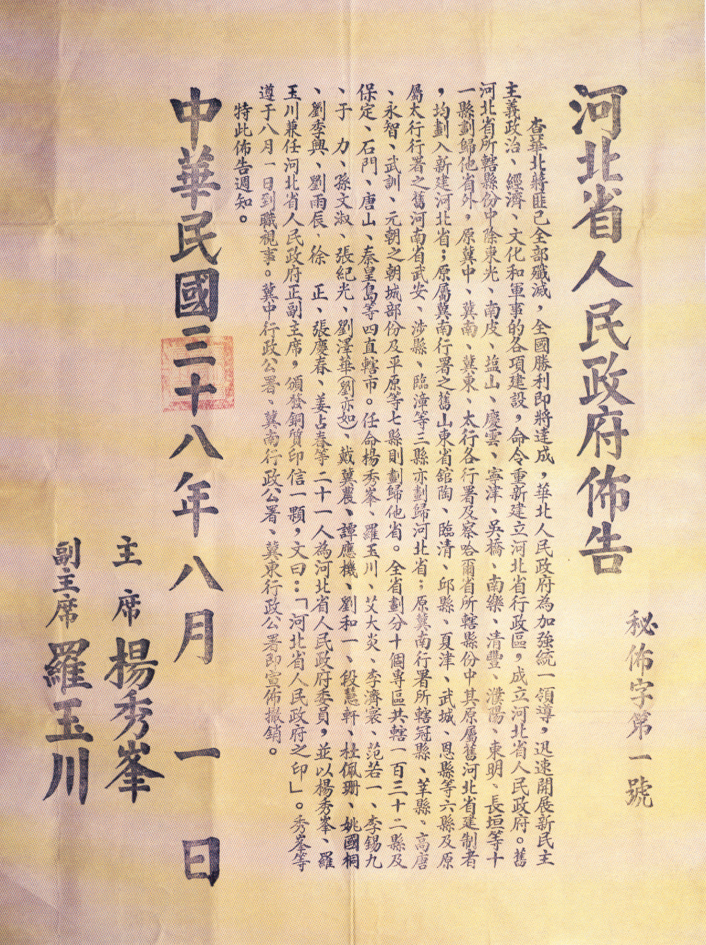 河北省人民政府佈告
秘佈字第一號
查華北蔣匪已全部殲滅，全國勝利即將達成，華北人民政府為加強統一領導，迅速開展新民主
主義政治、經濟、文化和軍事的各項建設，命令重新建立河北省行政區，成立河北省人民政府。舊
河北省所轄縣份中除東光、南皮、塩山、慶雲、寧津、吳橋、南樂、清豐、濮陽、東明、長垣等十
一縣劃歸他省外，原冀中、冀南、冀東、太行各行署及察哈爾省所轄縣份中其原屬舊河北省建制者
，均劃入新建河北省；原屬冀南行署之舊山東省舘陶、臨清、邱縣、夏津、武城、恩縣等六縣及原
屬太行行署之舊河南省武安、涉縣、臨漳等三縣亦劃歸河北省；原冀南行署所轄冠縣、莘縣、高唐
、永智、武訓、元朝之朝城部份及平原等七縣則劃歸他省。全省劃分十個專區共轄一百三十二縣及
保定、石門、唐山、秦皇島等四直轄市。任命楊秀峯、羅玉川、艾大炎、李濟寰、范若一、李錫九
、于　力、孫文淑、張紀光、劉澤華（劉亦如）、戴冀農、譚應機、劉和一、段慧軒、杜佩珊、姚國桐
、劉季興、劉雨辰、徐　正、張慶春、姜占春等二十一人為河北省人民政府委員，並以楊秀峯、羅
玉川兼任河北省人民政府正副主席，頒發銅質印信一顆，文曰：「河北省人民政府之印」。秀峯等
遵于八月一日到職視事。冀中行政公署、冀南行政公署、冀東行政公署即宣佈撤銷。
特此佈告週知。
中華民國三十八年八月一日
主席楊秀峯
副主席羅玉川